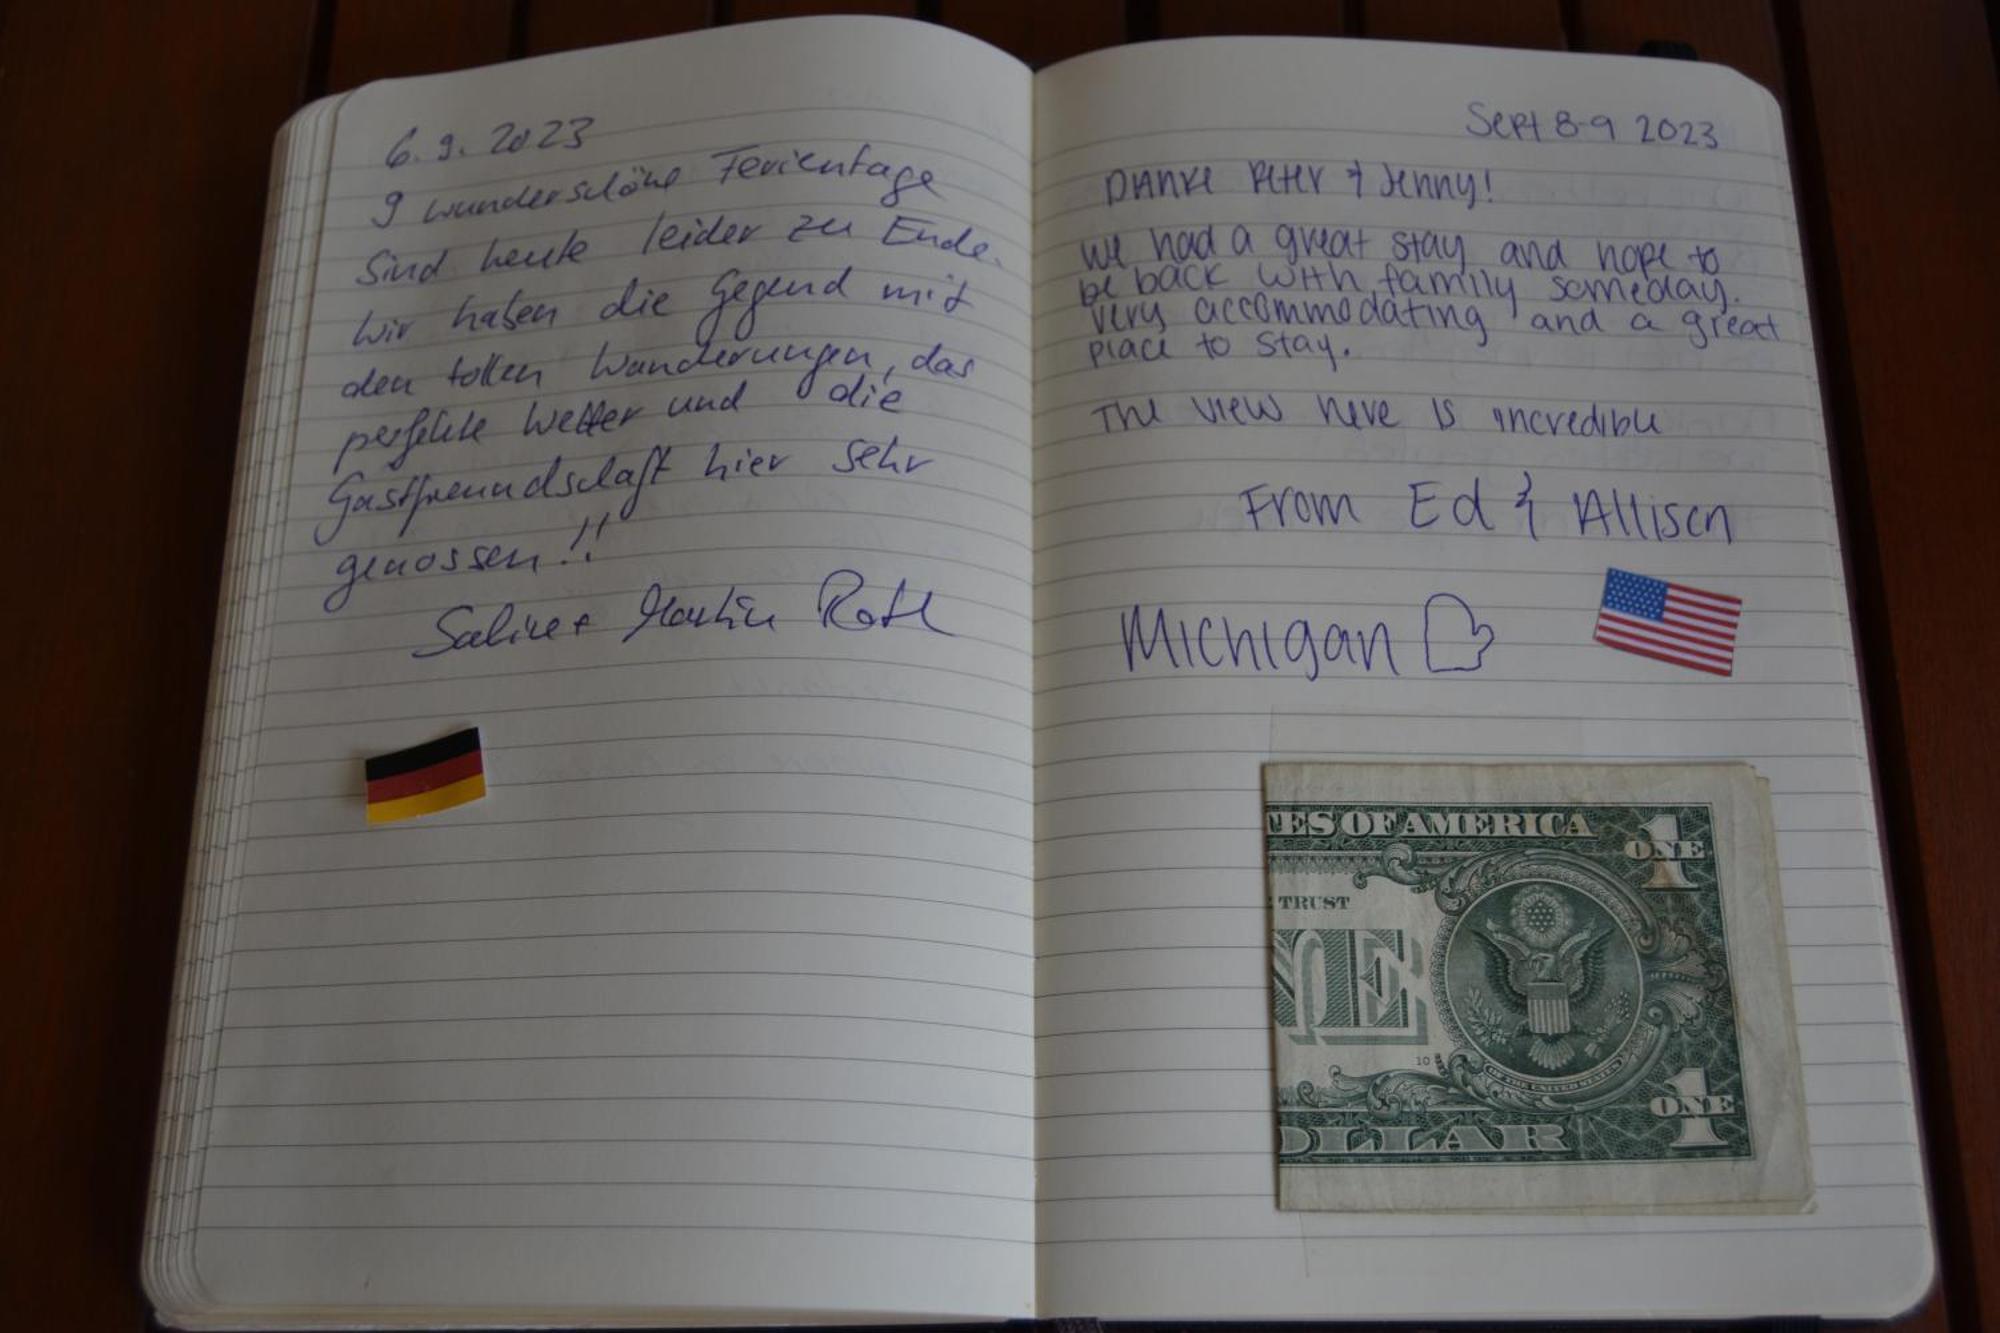 6.9.2023
9 wunderschöne Ferientage
sind heute leider zu Ende.
Wir haben die Gegend mit
den tollen Wanderungen, das
perfekte Wetter und die
Gastfreundschaft hier sehr
genossen!!
Sabine + Martin Roth
Sept 8-9 2023
DANKE Peter & Jenny!
we had a great stay and hope to
be back with family someday.
very accommodating and a great
place to stay.
The view here is incredible
From Ed & Allison
Michigan
TES OF AMERICA
1
ONE
TRUST
NE
10
OF THE UNITED STATES
OLLAR
1
ONE